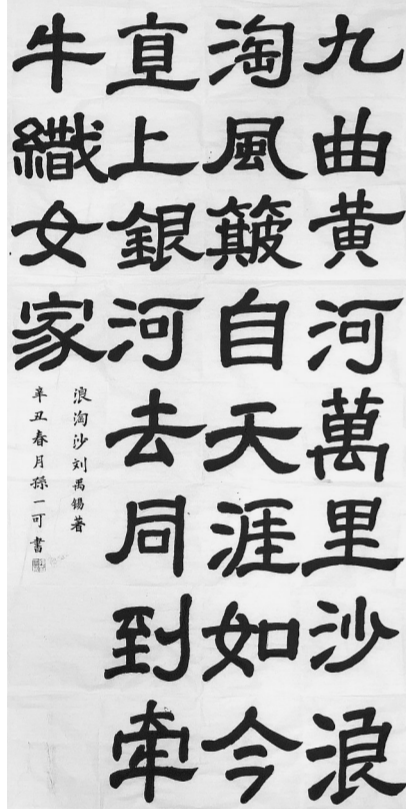 九曲黄河萬里沙浪
淘風簸自天涯如今
直上銀河去同到牽
牛織女家
浪淘沙刘禹锡著
辛丑春月孫一可書